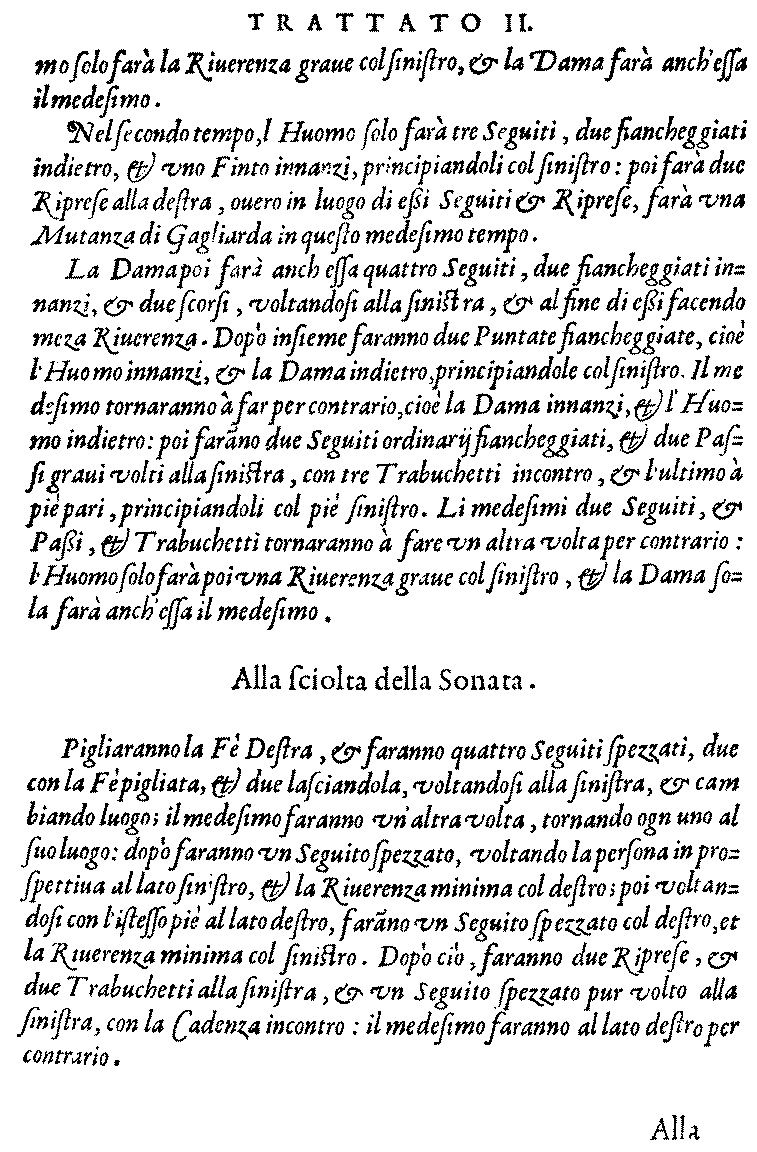 TRATTATO II.
mo ſolo farà la Riuerenza graue col ſiniſtro, & la Dama farà anch'eſſa
il medeſimo.
Nel ſecondo tempo, l Huomo ſolo farà tre Seguiti, due fiancheggiati
indietro, & vno Finto innanzi, principiandoli col ſiniſtro: poi farà due
Ripreſe alla deſtra, ouero in luogo di eßi Seguiti & Ripreſe, farà vna
Mutanza di Gagliarda in queſto medeſimo tempo.
La Dama poi farà anch eſſa quattro Seguiti, due fiancheggiati in=
nanzi, & due ſcorſi, voltandoſi alla ſiniſtra, & al fine di eßi facendo
meza Riuerenza. Dopò inſieme faranno due Puntate fiancheggiate, cioè
l'Huomo innanzi, & la Dama indietro, principiandole col ſiniſtro. Il me
deſimo tornaranno à far per contrario, cioè la Dama innanzi, & l'Huo=
mo indietro: poi farãno due Seguiti ordinarij fiancheggiati, & due Paſ=
ſi graui volti alla ſiniſtra, con tre Trabuchetti incontro, & l'ultimo à
piè pari, principiandoli col piè ſiniſtro. Li medeſimi due Seguiti, &
Paßi, & Trabuchetti tornaranno à fare vn altra volta per contrario:
l'Huomo ſolo farà poi vna Riuerenza graue col ſiniſtro, & la Dama ſo=
la farà anch'eſſa il medeſimo.
Alla ſciolta della Sonata.
Pigliaranno la Fè Deſtra, & faranno quattro Seguiti ſpezzati, due
con la Fè pigliata, & due laſciandola, voltandoſi alla ſiniſtra, & cam
biando luogo; il medeſimo faranno vn'altra volta, tornando ogn uno al
ſuo luogo: dopò faranno vn Seguito ſpezzato, voltando la perſona in pro=
ſpettiua al lato ſiniſtro, & la Riuerenza minima col deſtro; poi voltan=
doſi con l'iſteſſo piè al lato deſtro, farãno vn Seguito ſpezzato col deſtro, et
la Riuerenza minima col ſiniſtro. Dopò ciò, faranno due Ripreſe, &
due Trabuchetti alla ſiniſtra, & vn Seguito ſpezzato pur volto alla
ſiniſtra, con la Cadenza incontro: il medeſimo faranno al lato deſtro per
contrario.
Alla